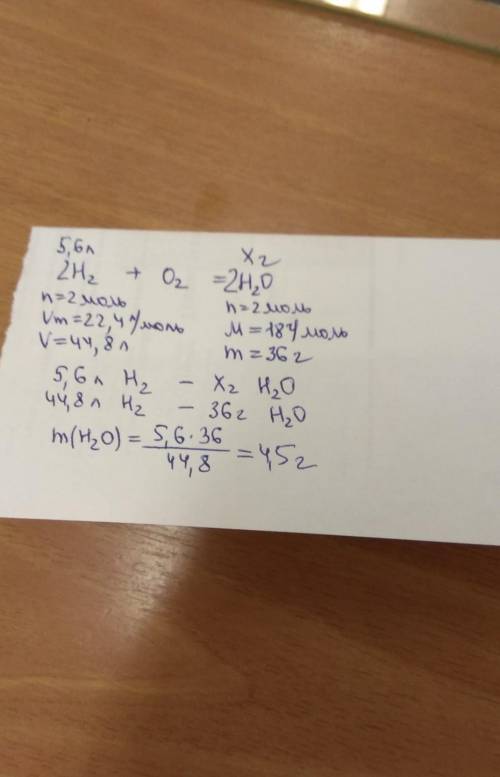 5,6л x г
2H₂ + O₂ = 2H₂O
n=2моль n=2моль
Vm=22,4л/моль M=18г/моль
V=44,8л m=36г
5,6л H₂ – x г H₂O
44,8л H₂ – 36г H₂O
m(H₂O) = 5,6·36 / 44,8 = 4,5г